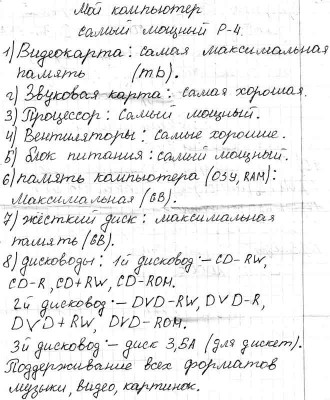 Мой компьютер
самый мощный P-4.
1) Видеокарта: самая максимальная
память (mb).
2) Звуковая карта: самая хорошая.
3) Процессор: Самый мощный.
4) Вентиляторы: самые хорошие.
5) блок питания: самый мощный.
6) память компьютера (ОЗУ, RAM):
Максимальная (GB).
7) жёсткий диск: максимальная
память (GB).
8) дисководы: 1й дисковод:- CD-RW,
CD-R, CD+RW, CD-ROM.
2й дисковод:- DVD-RW, DVD-R,
DVD+RW, DVD-ROM.
3й дисковод:- диск 3,5А (для дискет).
Поддерживание всех форматов
музыки, видео, картинок.